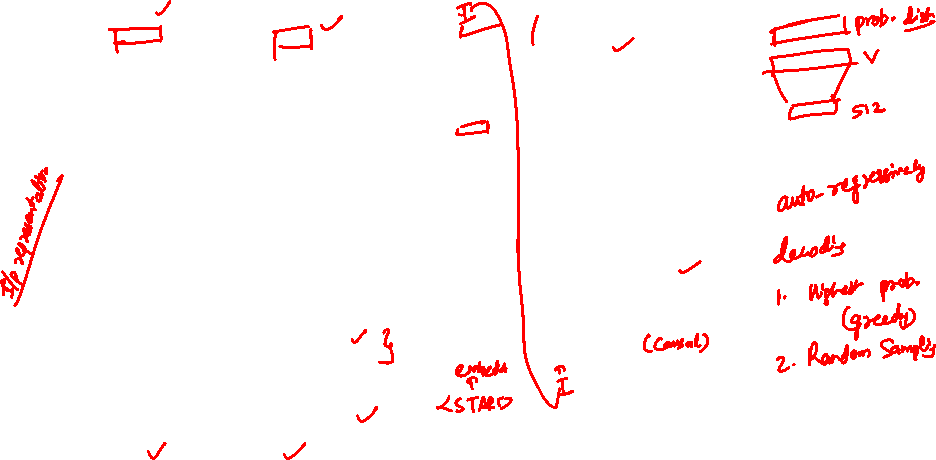 I
prob. dist.
V
512
I/p representation
auto-regressively
decoding
1. Highest prob.
(greedy)
2. Random Sampling
(Causal)
embed
<START>
I